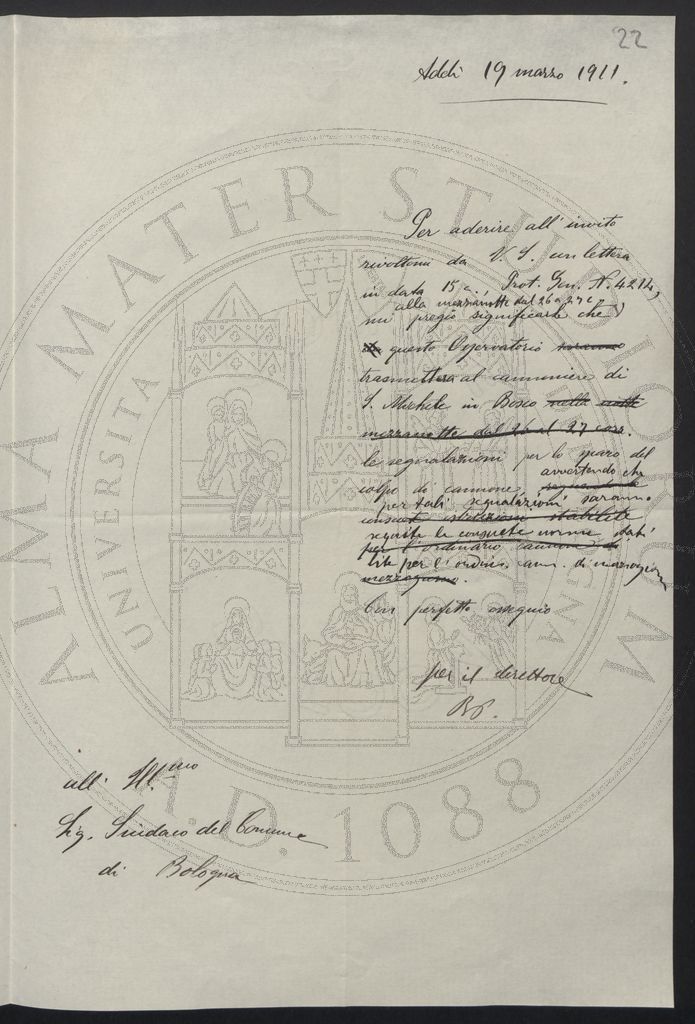 22
Addì 19 marzo 1911.
Per aderire all' invito
rivoltomi da V. S. con lettera
in data 15 c., Prot. Gen. N. 4214,
alla mezzanotte dal 26 a 27 c.
mi pregio significarle che
questo Osservatorio saranno
trasmetterà al cannoniere di
S. Michele in Bosco nella notte
mezzanotte dal 26 al 27 corr.
le segnalazioni per lo sparo del
avvertendo che
colpo di cannone
per tali segnalazioni saranno
consuete stabilite
seguite le consuete norme stabi
per l'ordinario cannone di
lite per l'ordin. cann. di mezzogiorno
mezzogiorno.
Con perfetto ossequio
per il direttore
all' Ill.mo
Sig. Sindaco del Comune
di Bologna
ALMA MATER STUDIORUM
UNIVERSITA
A.D. 1088